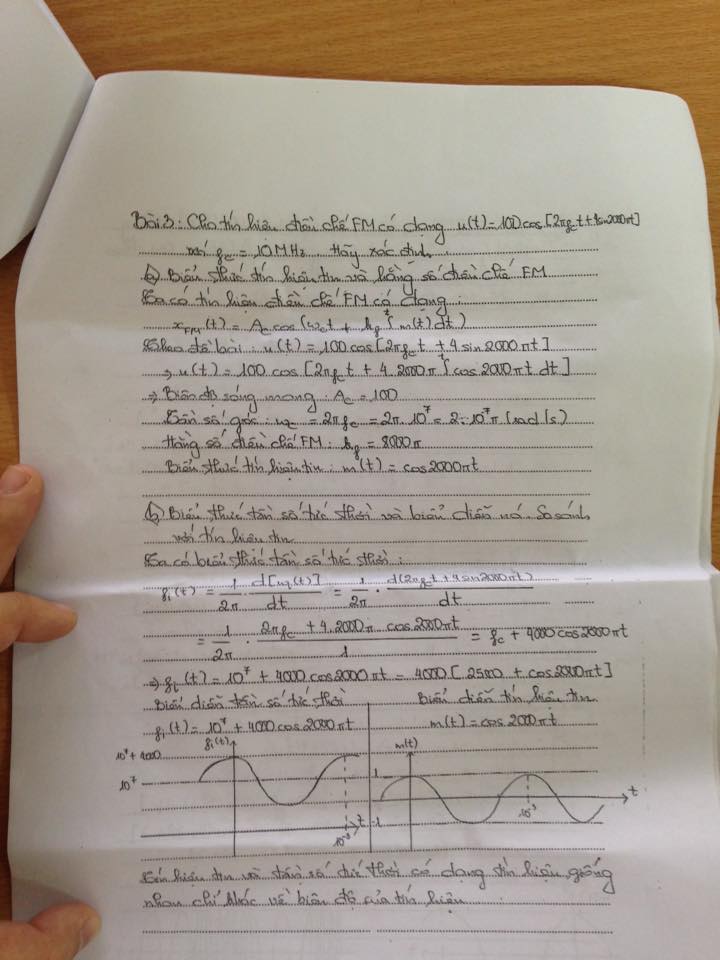 Bài 3: Cho tín hiệu điều chế FM có dạng u(t) = 100 cos [2πfct + 4 sin 2000πt]
với fc = 10 MHz. Hãy xác định
a) Biểu thức tín hiệu tin và hằng số điều chế FM
Ta có tín hiệu điều chế FM có dạng:
xFM(t) = Ac cos (ωct + kf ∫^t m(t) dt)
Theo đề bài: u(t) = 100 cos [2πfct + 4 sin 2000πt]
⇒ u(t) = 100 cos [2πfct + 4.2000π ∫^t cos 2000πt dt]
⇒ Biên độ sóng mang: Ac = 100
Tần số góc: ωc = 2πfc = 2π.10⁷ = 2.10⁷π (rad/s)
Hằng số điều chế FM: kf = 8000π
Biểu thức tín hiệu tin: m(t) = cos 2000πt
b) Biểu thức tần số tức thời và biểu diễn nó. So sánh
với tín hiệu tin
Ta có biểu thức tần số tức thời:
fi(t) = 1/2π . d[φi(t)]/dt = 1/2π . d(2πfct + 4 sin 2000πt)/dt
= 1/2π . 2πfc + 4.2000π cos 2000πt/1 = fc + 4000 cos 2000πt
⇒ fi(t) = 10⁷ + 4000 cos 2000πt = 4000 [2500 + cos 2000πt]
Biểu diễn tần số tức thời
fi(t) = 10⁷ + 4000 cos 2000πt
Biểu diễn tín hiệu tin
m(t) = cos 2000πt
fi(t)
10⁷ + 4000
10⁷
t
10⁻³
m(t)
1
t
10⁻³
-1
Tín hiệu tin và tần số tức thời có dạng tín hiệu giống
nhau chỉ khác về biên độ của tín hiệu